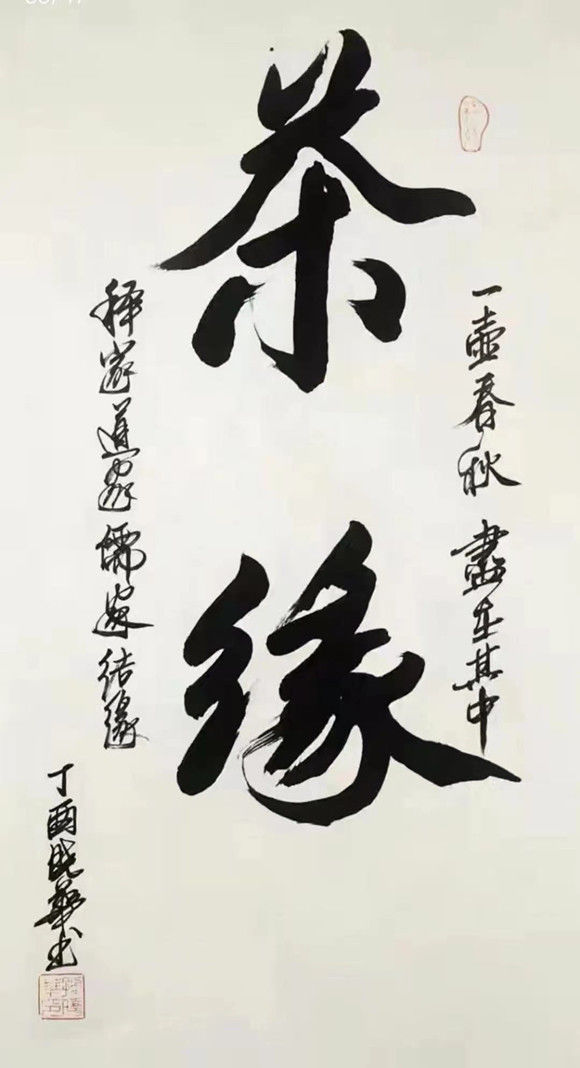 茶缘
一壶春秋 盡在其中
释家道家儒家结缘
丁酉晓華书